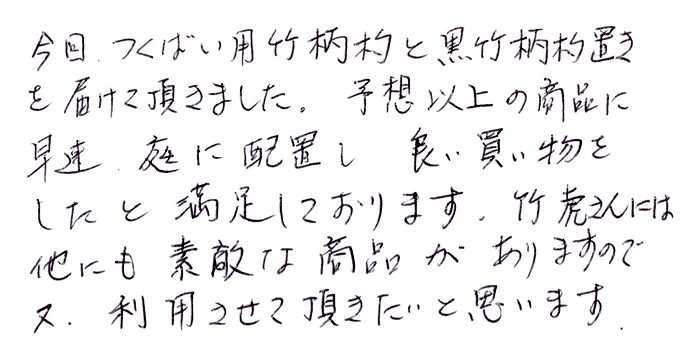 今回、つくばい用竹柄杓と黒竹柄杓置き
を届けて頂きました。予想以上の商品に
早速、庭に配置し 良い買い物を
したと満足しております。竹虎さんには
他にも素敵な商品がありますので
又、利用させて頂きたいと思います。